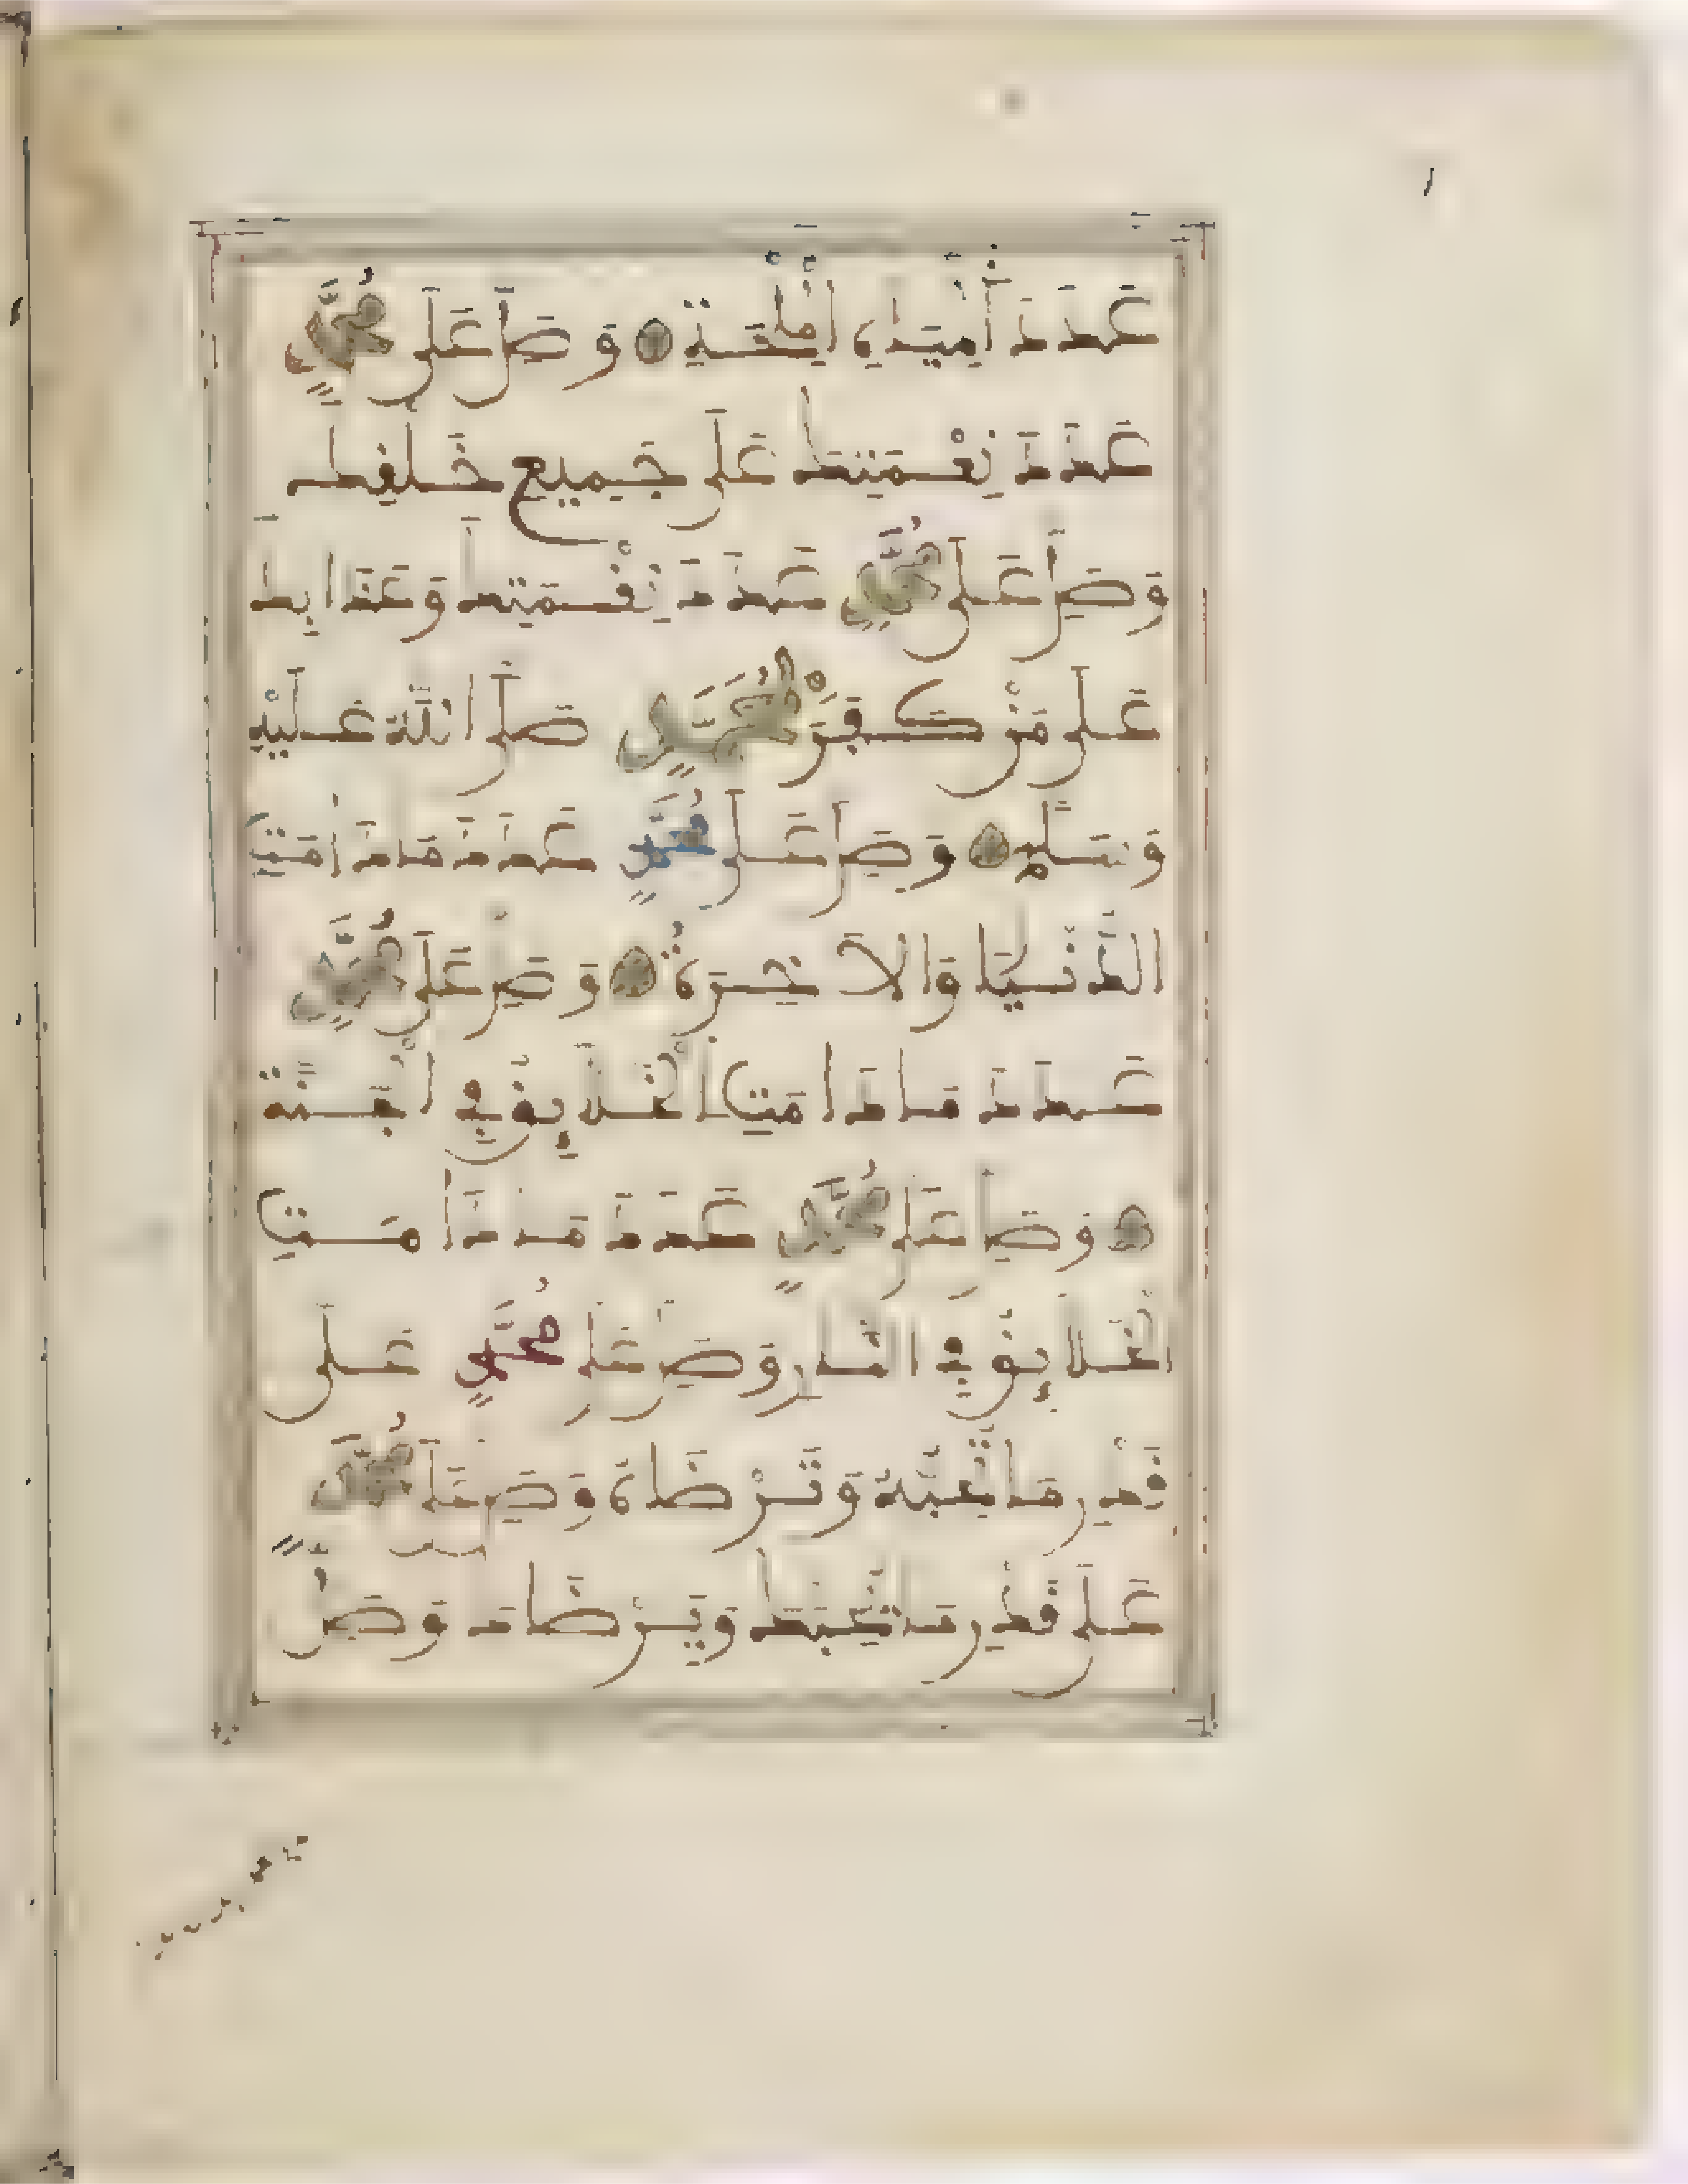 عَدَدَ أَمْيَاهِ الْمِلْحَةِ وَصَلِّ عَلَى مُحَمَّدٍ
عَدَدَ نِعْمَتِكَ عَلَى جَمِيعِ خَلْقِكَ
وَصَلِّ عَلَى مُحَمَّدٍ عَدَدَ نِقْمَتِكَ وَعَذَابِكَ
عَلَى مَنْ كَفَرَ بِمُحَمَّدٍ صَلَّى اللَّهُ عَلَيْهِ
وَسَلَّمَ وَصَلِّ عَلَى مُحَمَّدٍ عَدَدَ مَا دَامَتِ
الدُّنْيَا وَالآخِرَةُ وَصَلِّ عَلَى مُحَمَّدٍ
عَدَدَ مَا دَامَتِ الْخَلَائِقُ فِي الْجَنَّةِ
وَصَلِّ عَلَى مُحَمَّدٍ عَدَدَ مَا دَامَتِ
الْخَلَائِقُ فِي النَّارِ وَصَلِّ عَلَى مُحَمَّدٍ عَلَى
قَدْرِ مَا تُحِبُّهُ وَتَرْضَاهُ وَصَلِّ عَلَى مُحَمَّدٍ
عَلَى قَدْرِ مَا يُحِبُّكَ وَيَرْضَاكَ وَصَلِّ